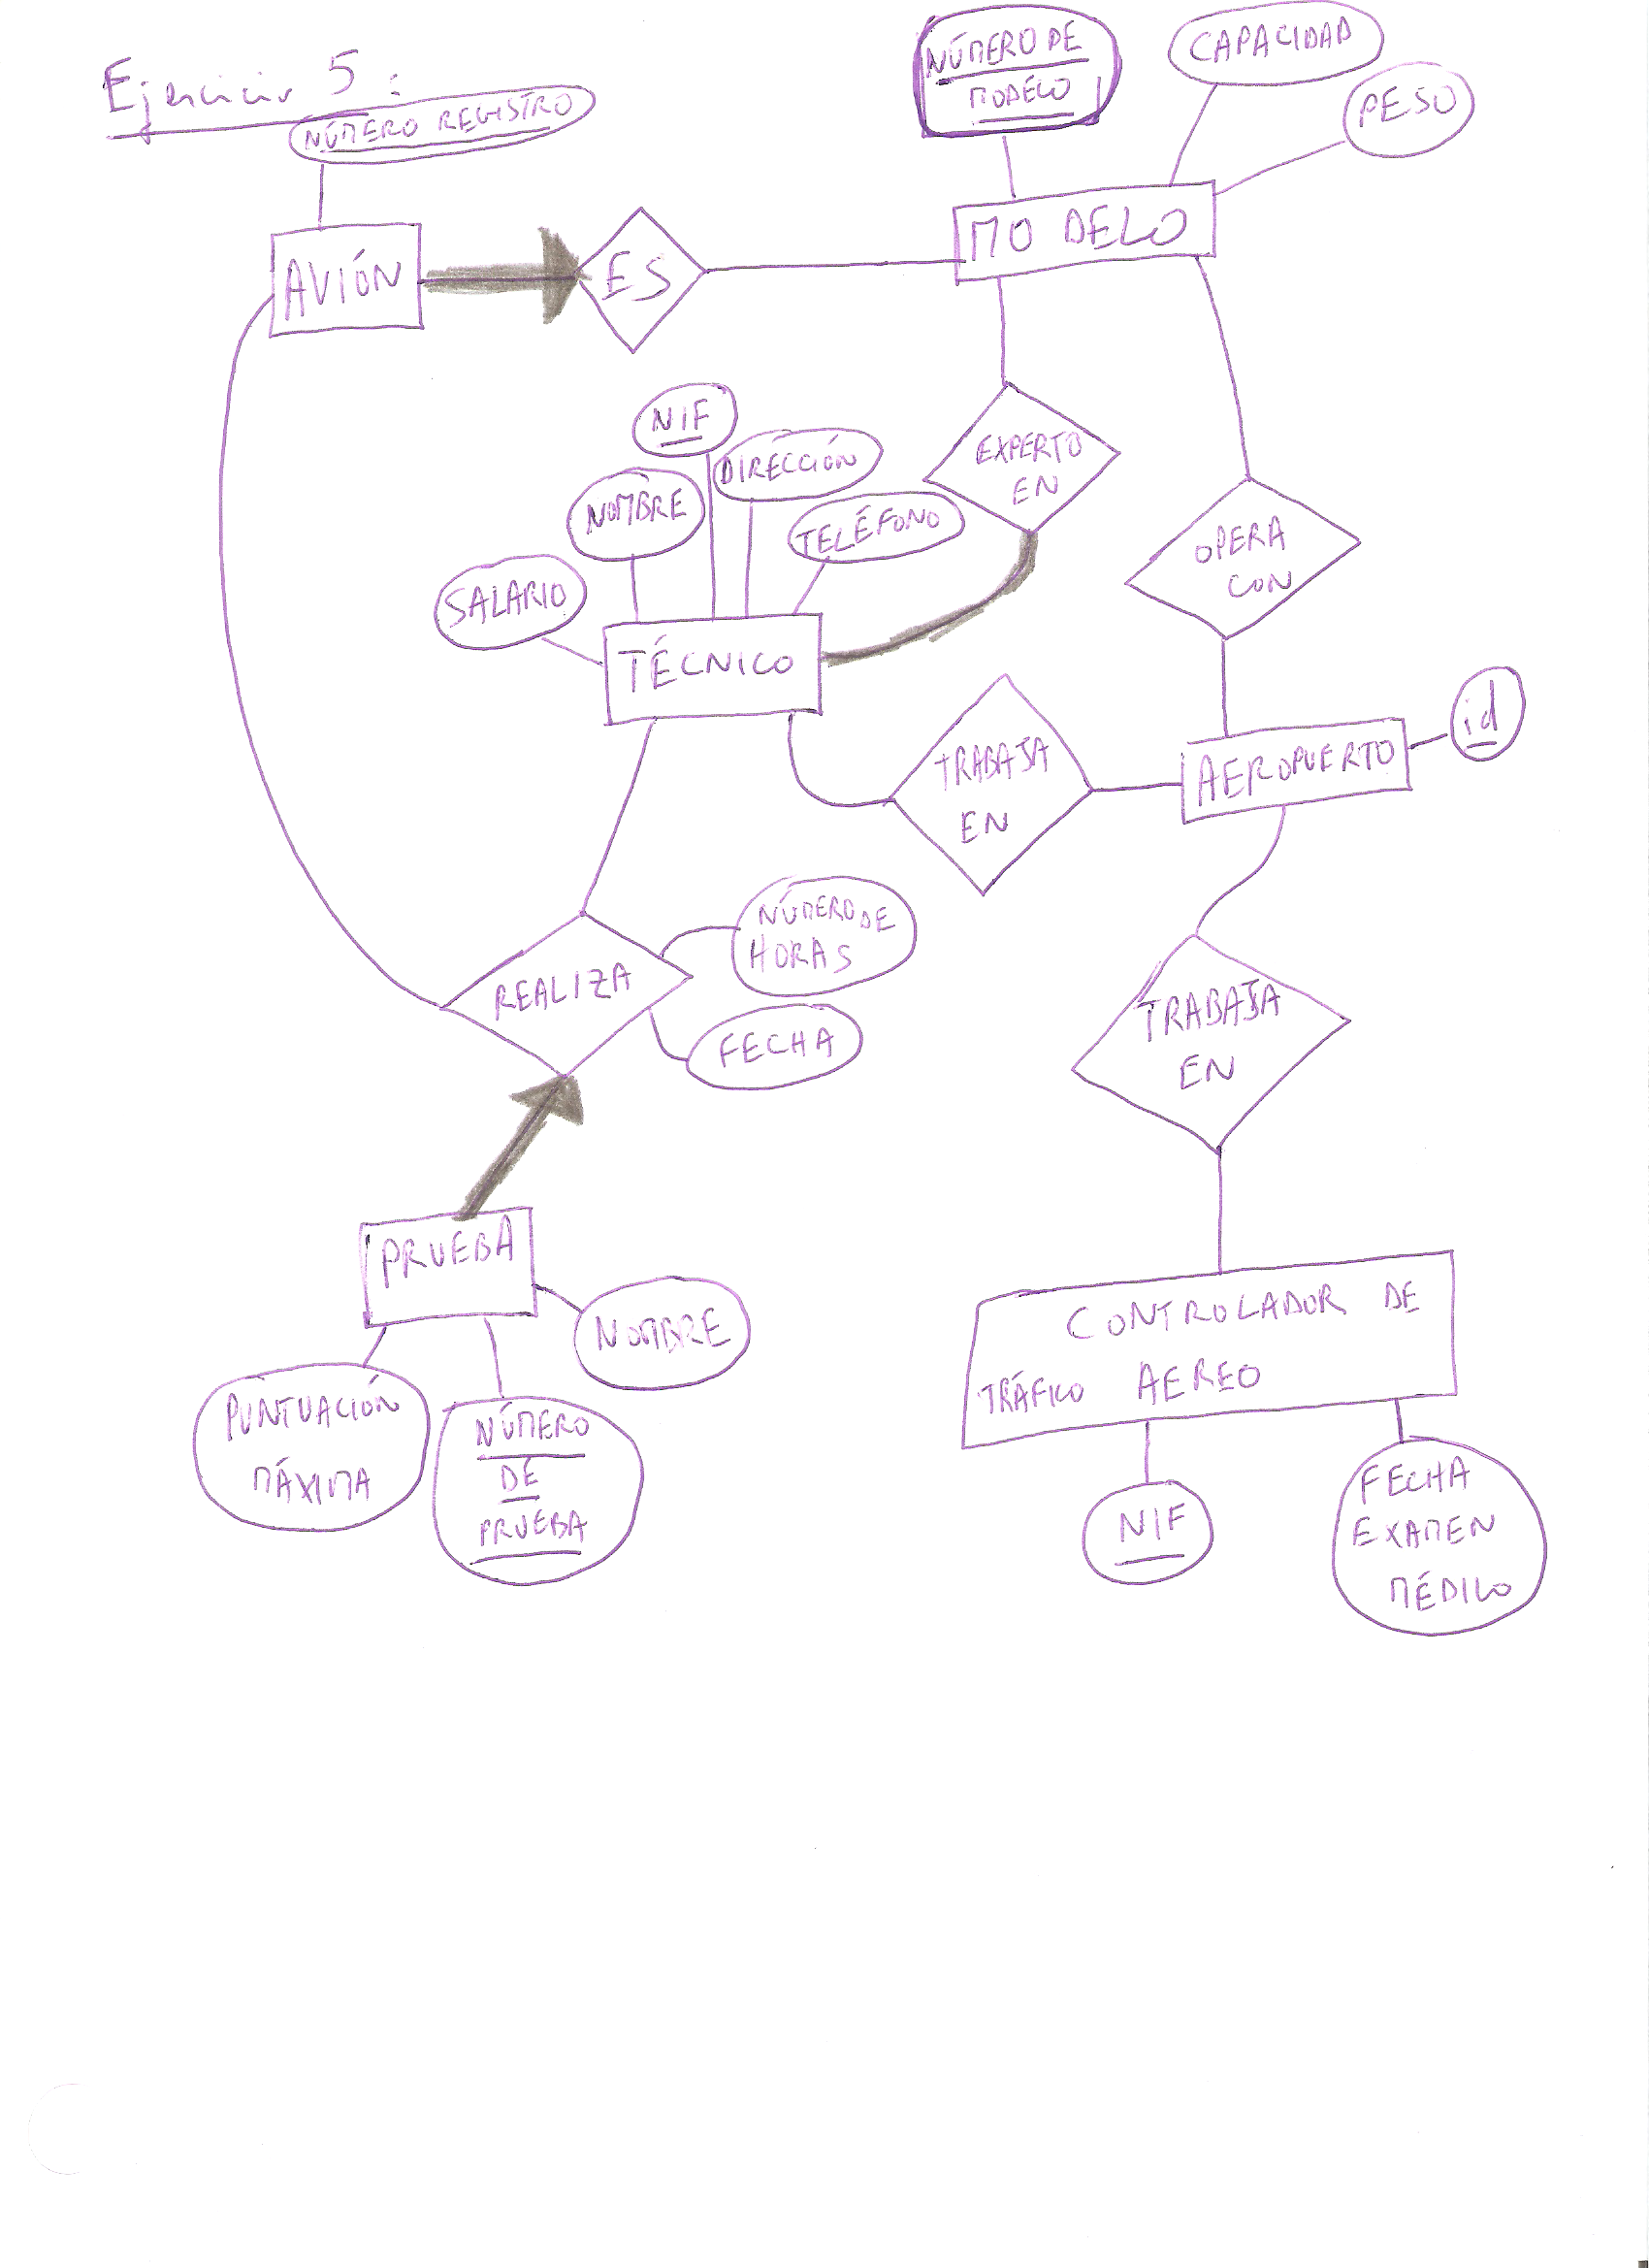 Ejercicio 5:
NÚMERO REGISTRO
NÚMERO DE
MODELO
CAPACIDAD
PESO
AVIÓN
ES
MODELO
NIF
DIRECCIÓN
NOMBRE
TELÉFONO
SALARIO
TÉCNICO
EXPERTO
EN
OPERA
CON
TRABAJA
EN
AEROPUERTO
id
REALIZA
NÚMERO DE
HORAS
FECHA
TRABAJA
EN
PRUEBA
NOMBRE
PUNTUACIÓN
MÁXIMA
NÚMERO
DE
PRUEBA
CONTROLADOR DE
TRÁFICO AEREO
NIF
FECHA
EXAMEN
MÉDICO